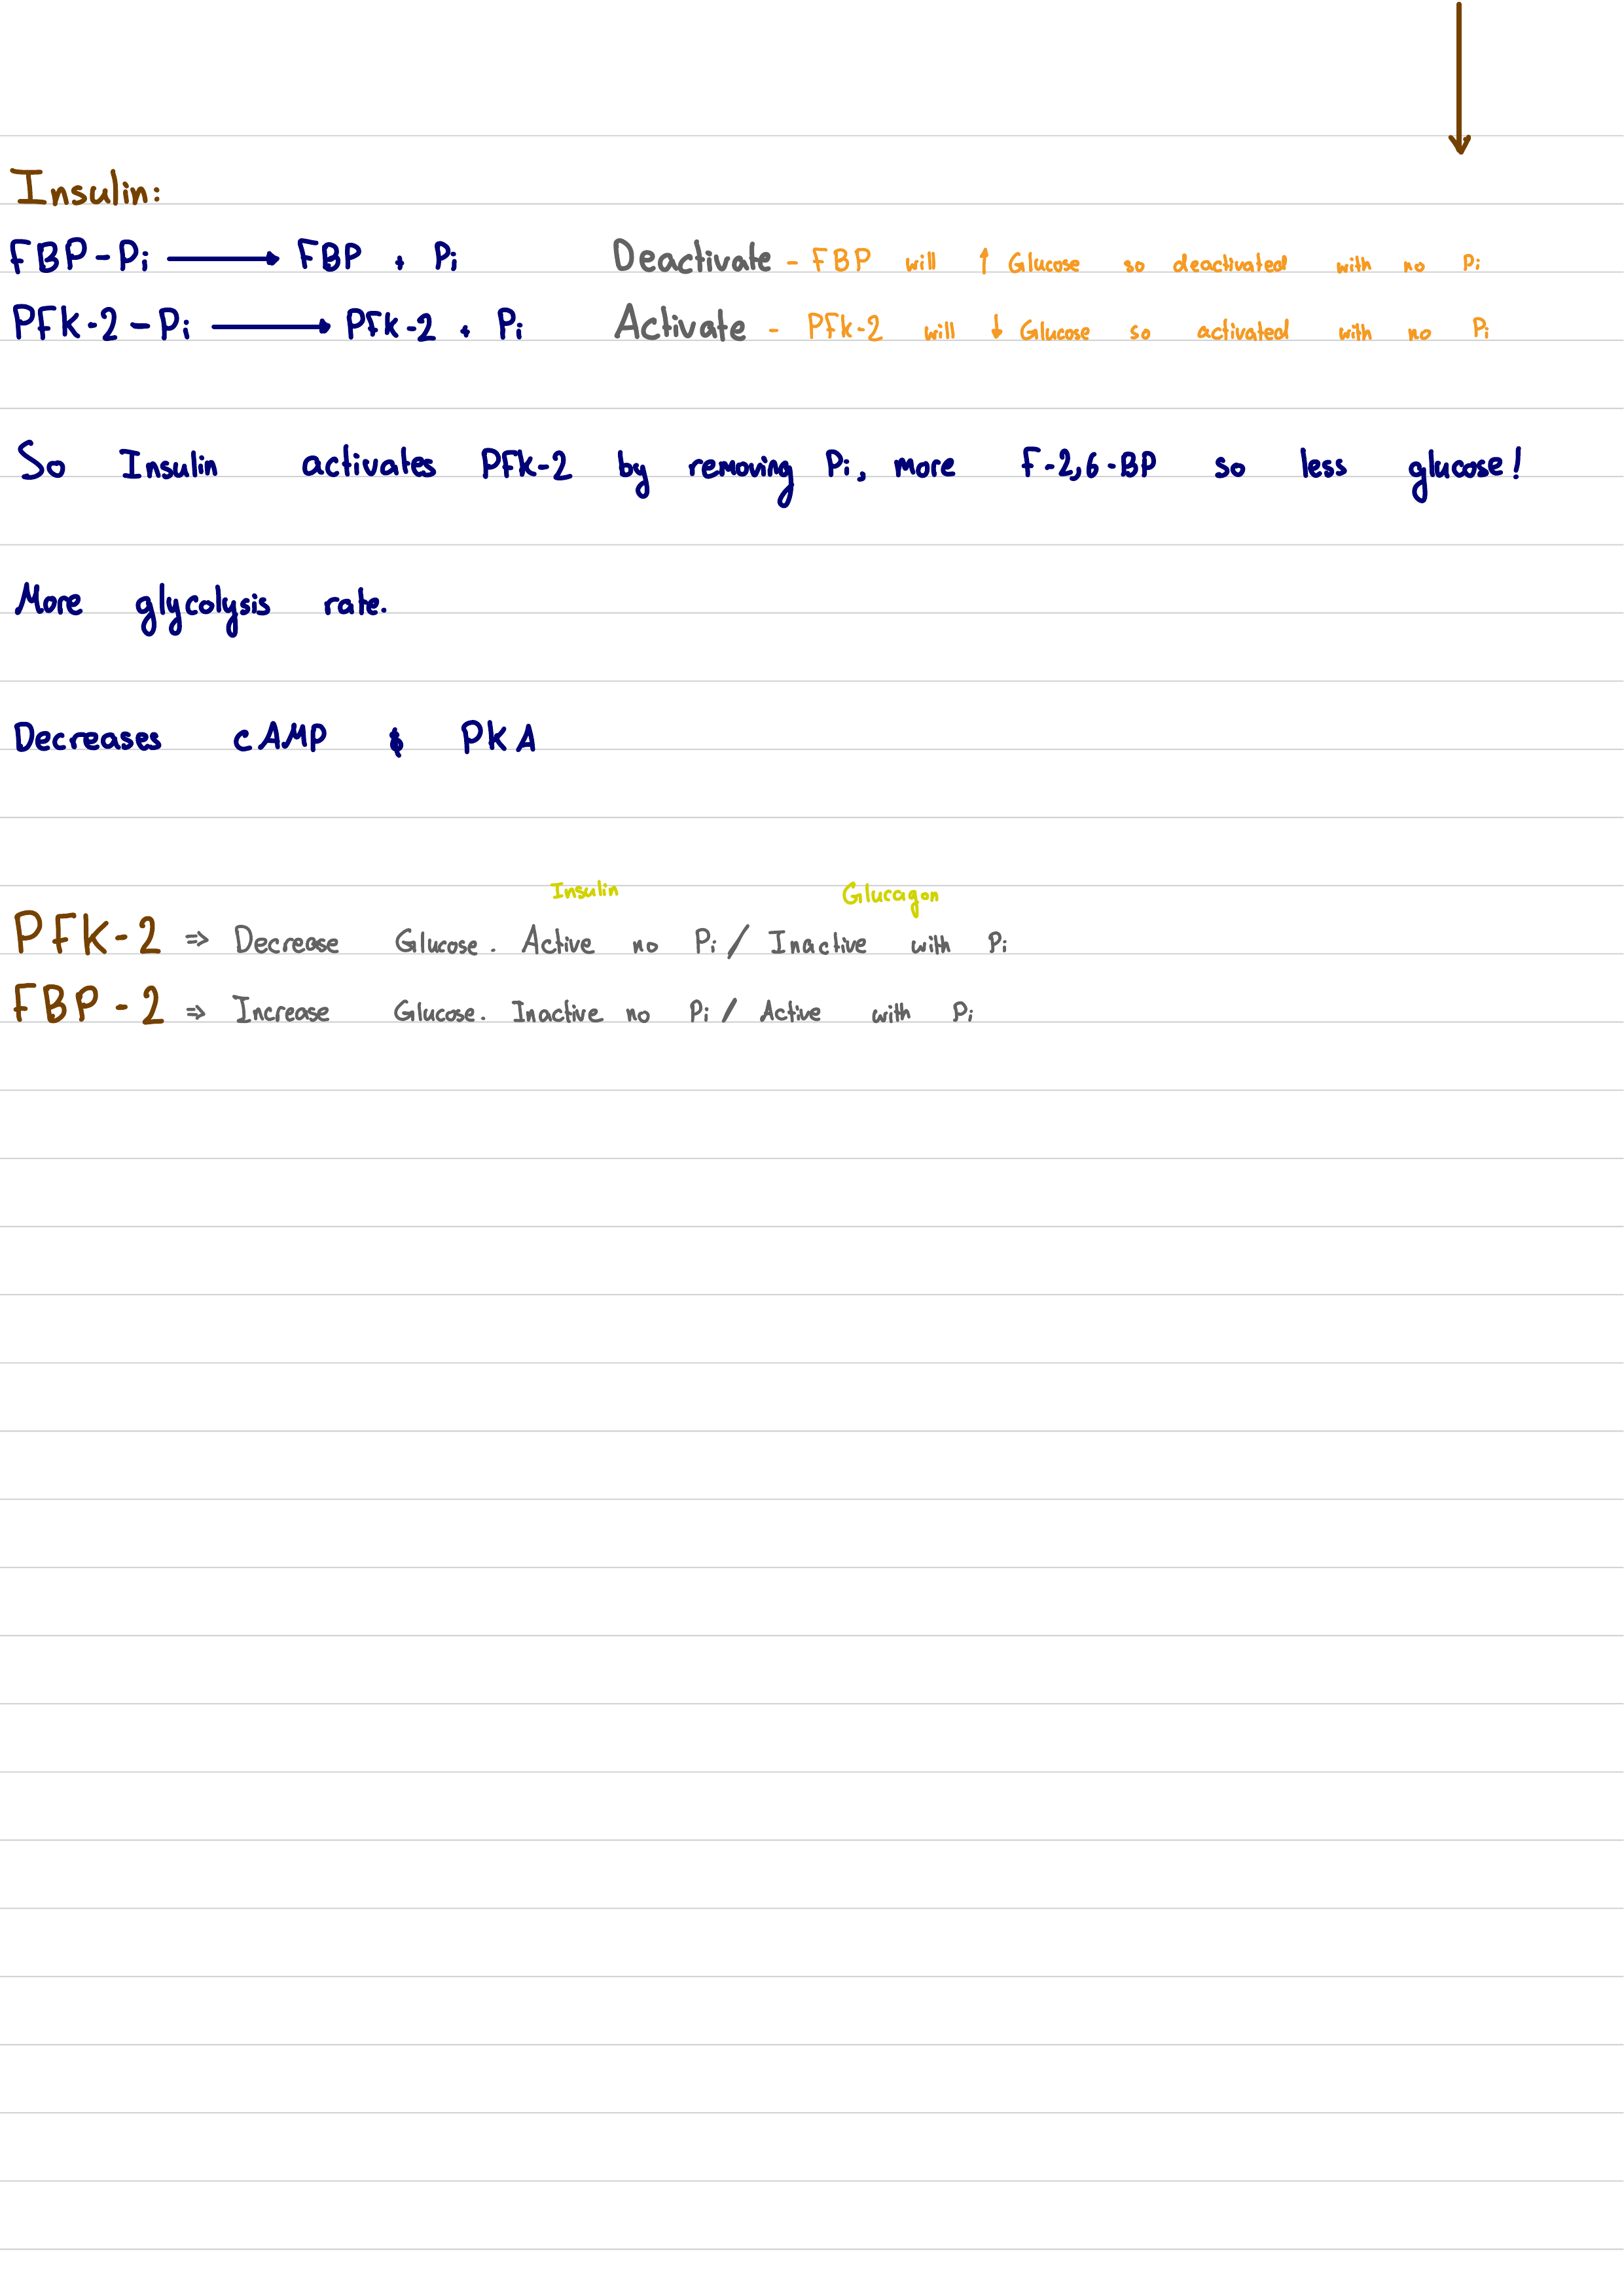 Insulin:
FBP-Pi → FBP + Pi Deactivate - FBP will ↑ Glucose so deactivated with no Pi
PFK-2-Pi → PFK-2 + Pi Activate - PFK-2 will ↓ Glucose so activated with no Pi
So Insulin activates PFK-2 by removing Pi, more F-2,6-BP so less glucose!
More glycolysis rate.
Decreases cAMP & PKA
Insulin Glucagon
PFK-2 ⇒ Decrease Glucose. Active no Pi / Inactive with Pi
FBP-2 ⇒ Increase Glucose. Inactive no Pi / Active with Pi